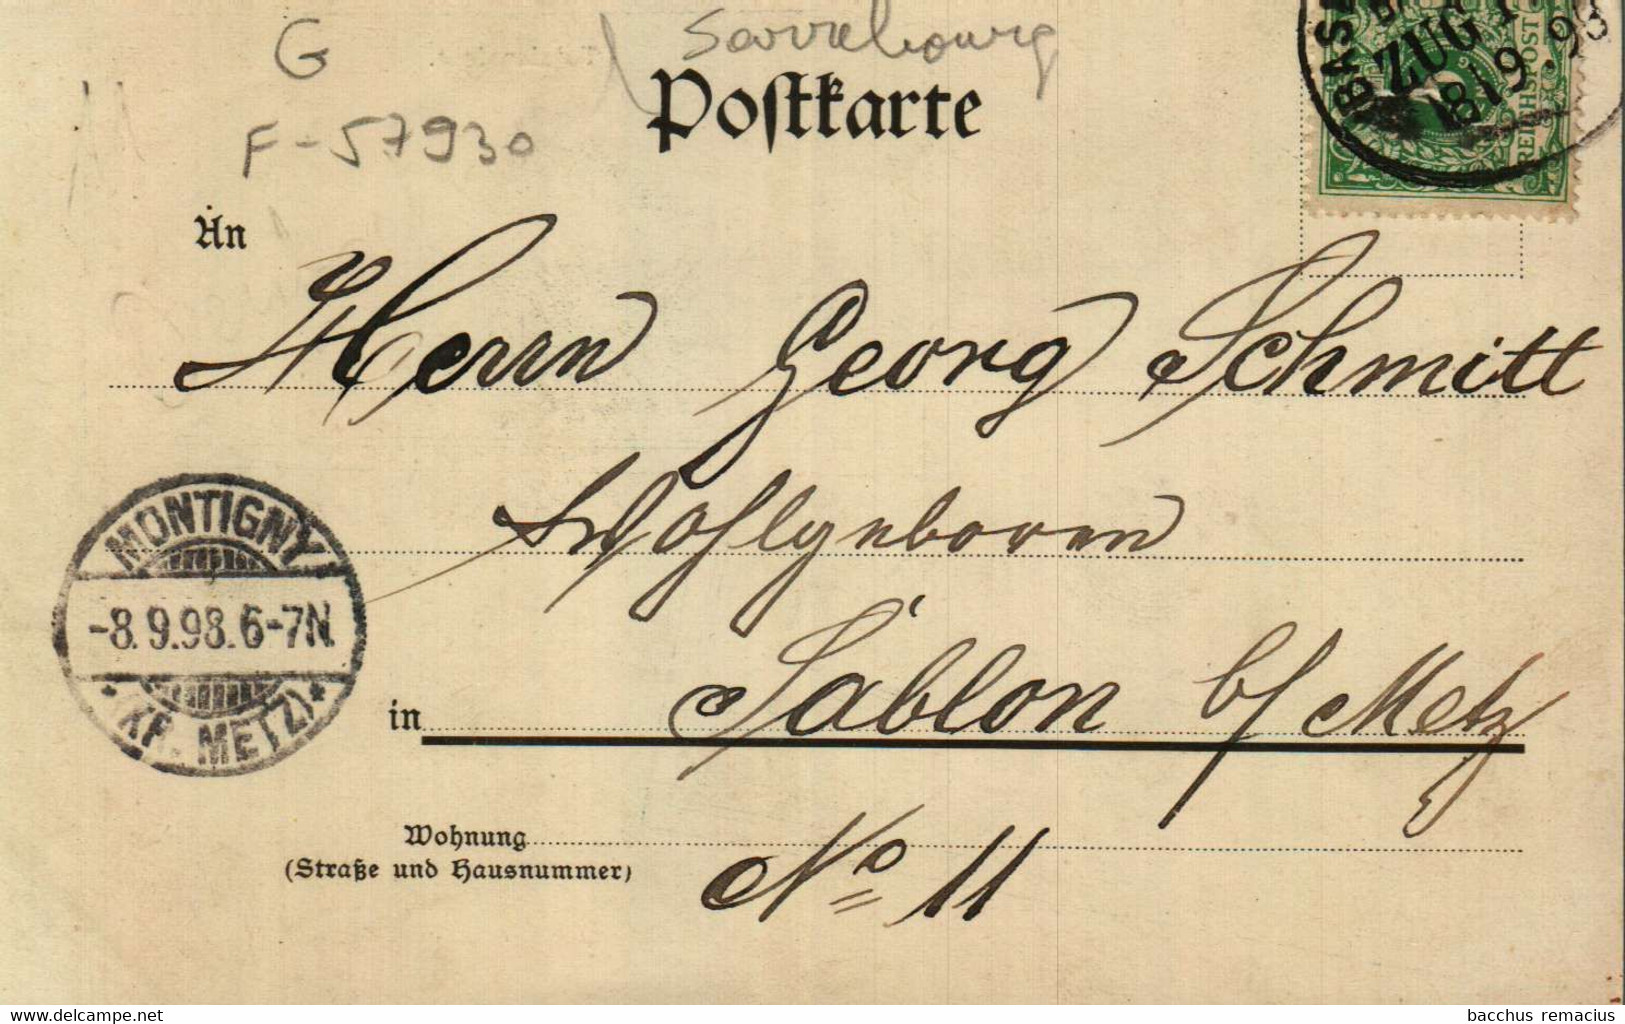 G
Sarrebourg
F-57930
Postkarte
ZUG
8 9.98
REICHSPOST
An
Herrn Georg Schmitt
Wohlgeboren
in Sablon b/ Metz
MONTIGNY
-8.9.98.6-7N.
* (KR. METZ) *
Wohnung
(Straße und Hausnummer)
No 11
www.delcampe.net
bacchus remacius